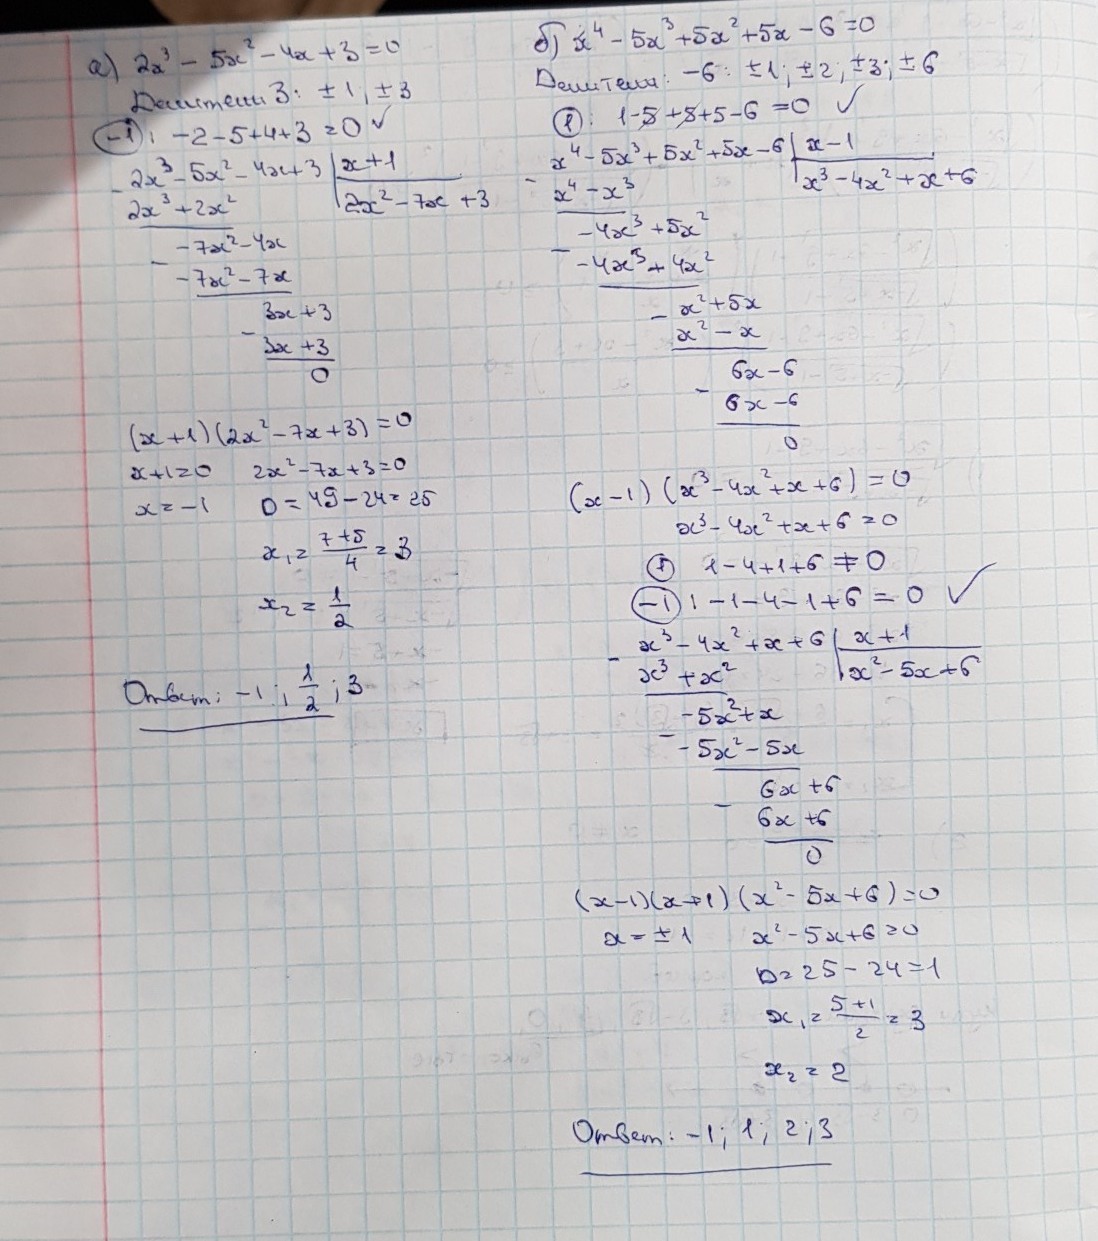 а) 2x³ - 5x² - 4x + 3 = 0
Делители 3: ±1, ±3
(-1): -2-5+4+3 = 0 ✓
2x³ - 5x² - 4x + 3 | x+1
2x³ + 2x² | 2x² - 7x + 3
-7x² - 4x
- -7x² - 7x
3x + 3
- 3x + 3
0
(x+1)(2x² - 7x + 3) = 0
x+1=0 2x² - 7x + 3 = 0
x = -1 D = 49 - 24 = 25
x₁ = (7+5)/4 = 3
x₂ = 1/2
Ответ: -1; 1/2; 3
б) x⁴ - 5x³ + 5x² + 5x - 6 = 0
Делители: -6: ±1; ±2, ±3; ±6
(1): 1-5+5+5-6 = 0 ✓
x⁴ - 5x³ + 5x² + 5x - 6 | x - 1
- x⁴ - x³ | x³ - 4x² + x + 6
-4x³ + 5x²
- -4x³ + 4x²
- x² + 5x
x² - x
6x - 6
- 6x - 6
0
(x-1)(x³ - 4x² + x + 6) = 0
x³ - 4x² + x + 6 = 0
(1) 1-4+1+6 ≠ 0
(-1): -1-4-1+6 = 0 ✓
x³ - 4x² + x + 6 | x + 1
- x³ + x² | x² - 5x + 6
-5x² + x
- -5x² - 5x
6x + 6
- 6x + 6
0
(x-1)(x+1)(x² - 5x + 6) = 0
x = ±1 x² - 5x + 6 = 0
D = 25 - 24 = 1
x₁ = (5+1)/2 = 3
x₂ = 2
Ответ: -1; 1; 2; 3